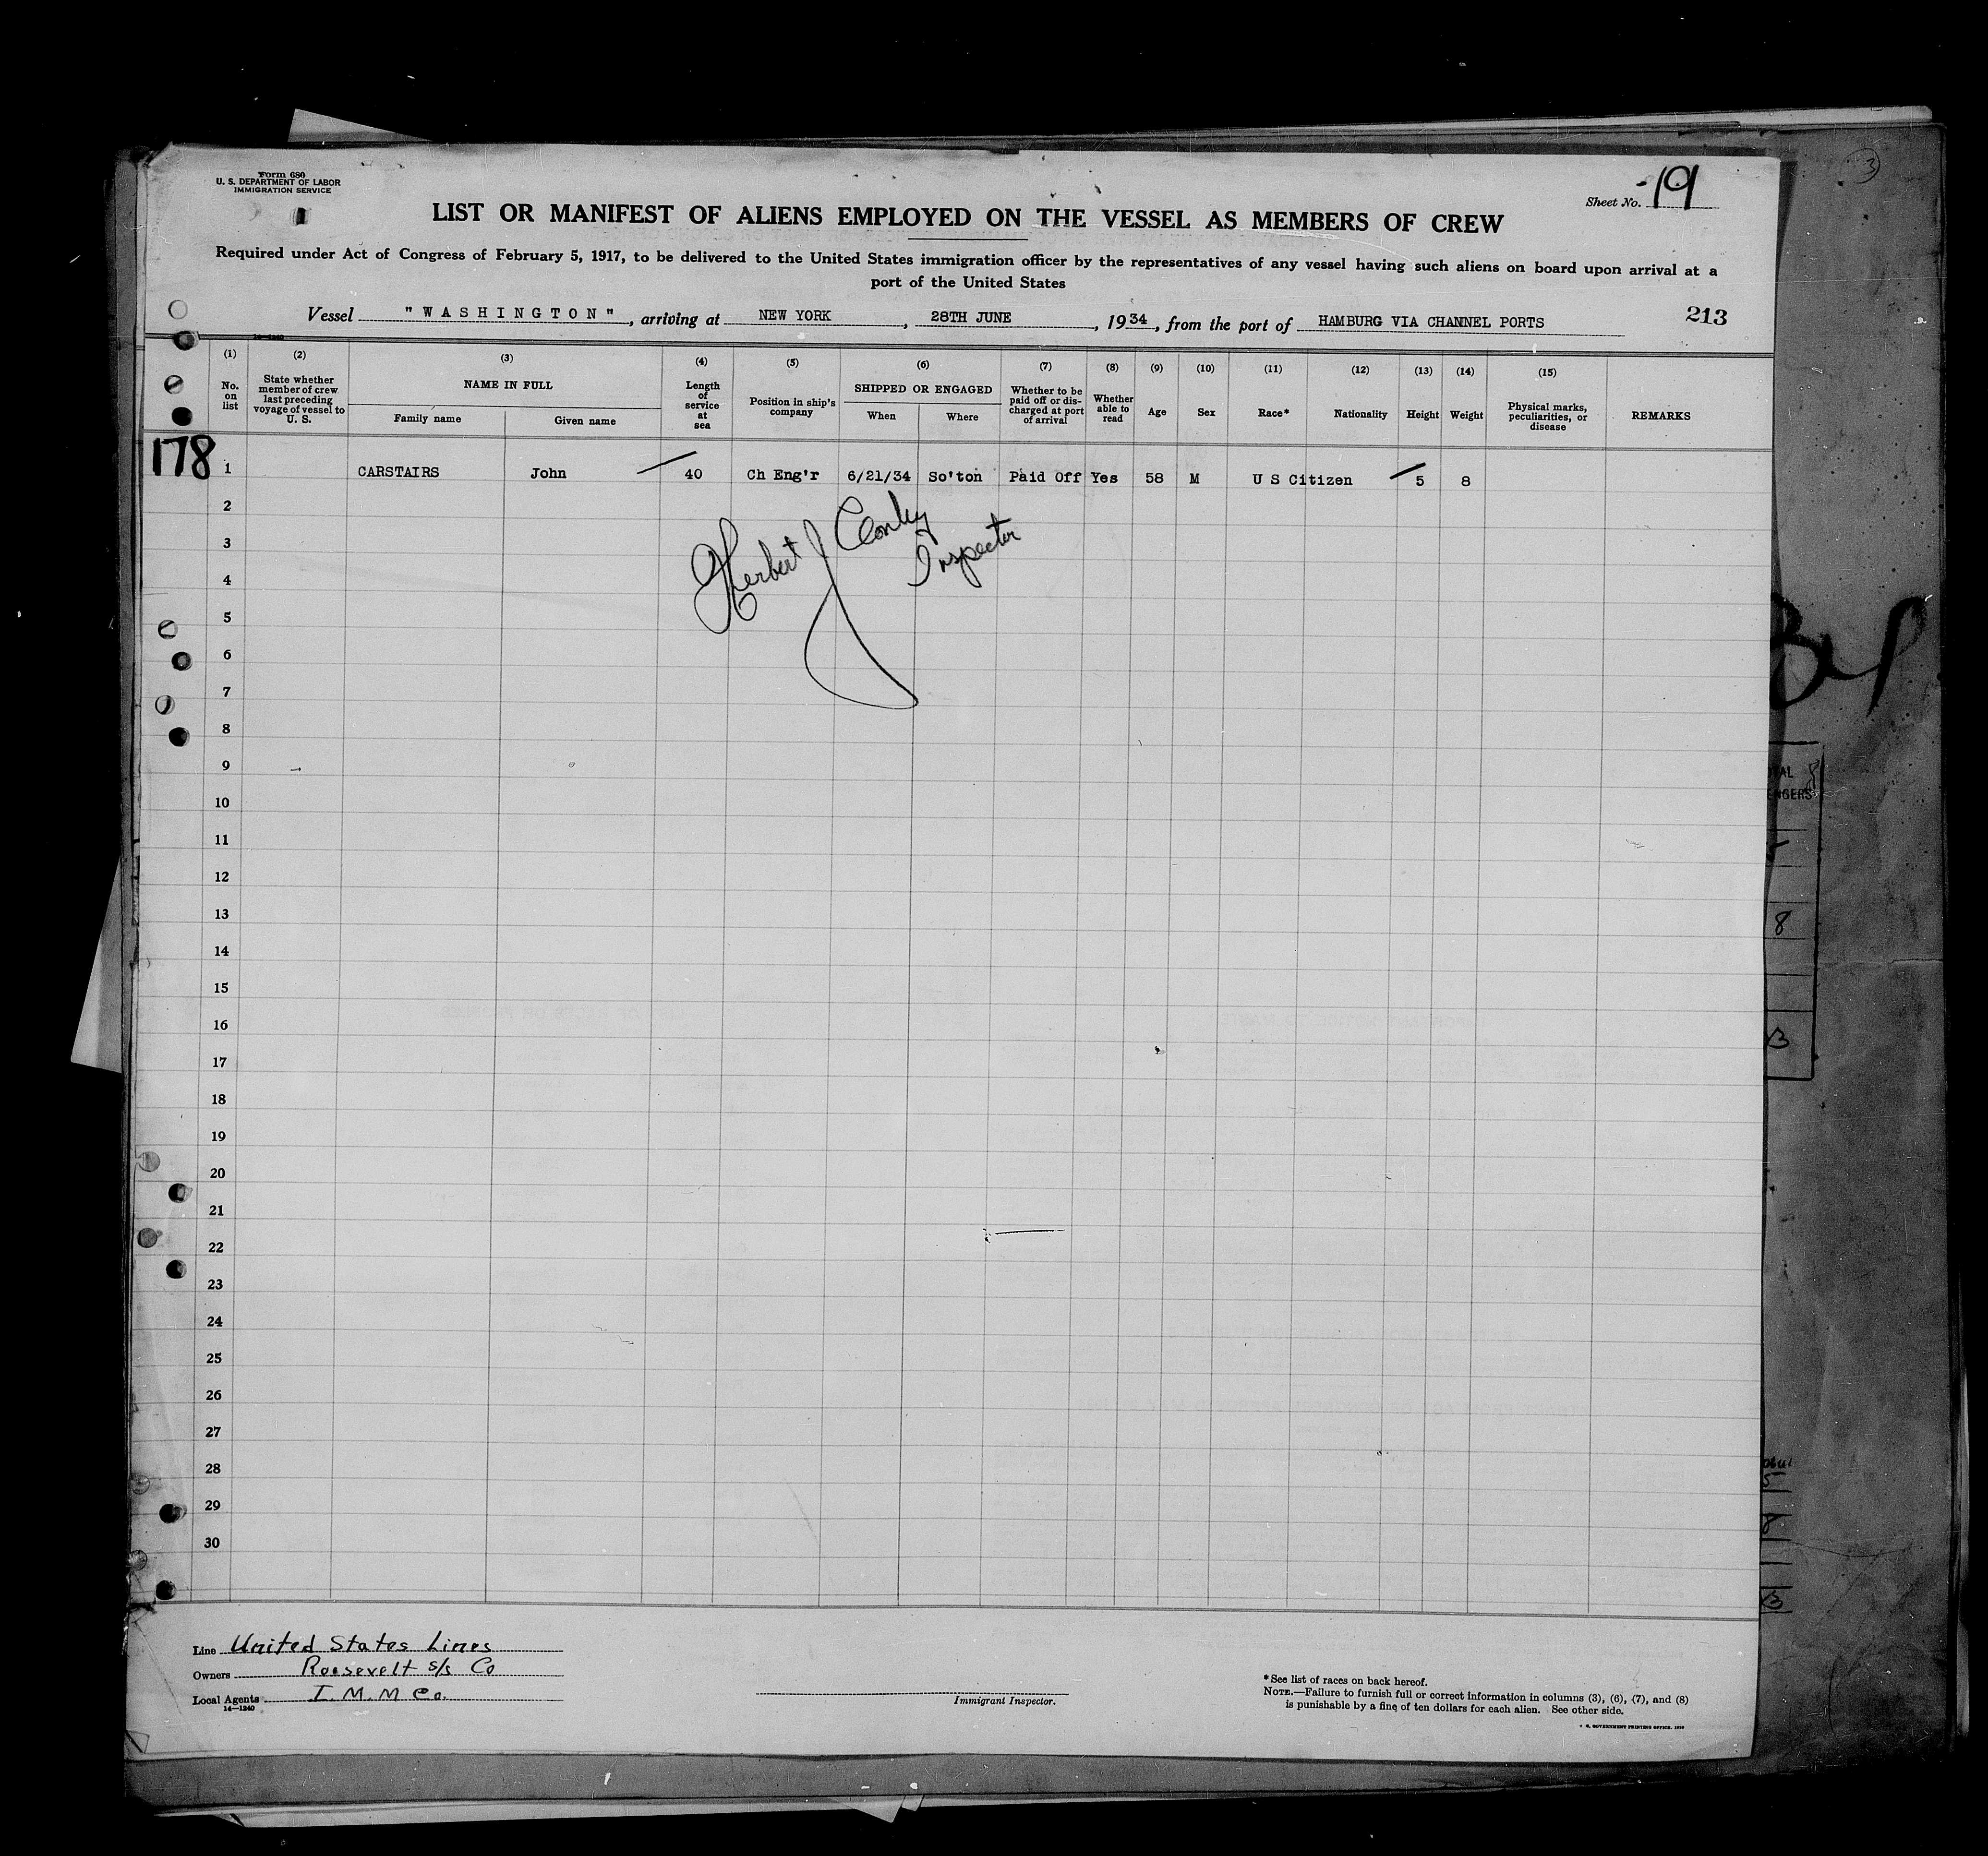 Form 680
U. S. DEPARTMENT OF LABOR
IMMIGRATION SERVICE
Sheet No. 19
LIST OR MANIFEST OF ALIENS EMPLOYED ON THE VESSEL AS MEMBERS OF CREW
Required under Act of Congress of February 5, 1917, to be delivered to the United States immigration officer by the representatives of any vessel having such aliens on board upon arrival at a
port of the United States
Vessel "WASHINGTON", arriving at NEW YORK, 28TH JUNE, 1934, from the port of HAMBURG VIA CHANNEL PORTS
213
(1) (2) (3) (4) (5) (6) (7) (8) (9) (10) (11) (12) (13) (14) (15)
No. on list
State whether member of crew last preceding voyage of vessel to U. S.
NAME IN FULL
Family name
Given name
Length of service at sea
Position in ship's company
SHIPPED OR ENGAGED
When
Where
Whether to be paid off or discharged at port of arrival
Whether able to read
Age
Sex
Race*
Nationality
Height
Weight
Physical marks, peculiarities, or disease
REMARKS
178
1 CARSTAIRS John 40 Ch Eng'r 6/21/34 So'ton Paid Off Yes 58 M U S Citizen 5 8
Herbert J Conley
Inspector
2
3
4
5
6
7
8
9
10
11
12
13
14
15
16
17
18
19
20
21
22
23
24
25
26
27
28
29
30
Line United States Lines
Owners Roosevelt s/s Co
Local Agents I. M. M Co.
14—1240
Immigrant Inspector.
*See list of races on back hereof.
NOTE.—Failure to furnish full or correct information in columns (3), (6), (7), and (8)
is punishable by a fine of ten dollars for each alien. See other side.